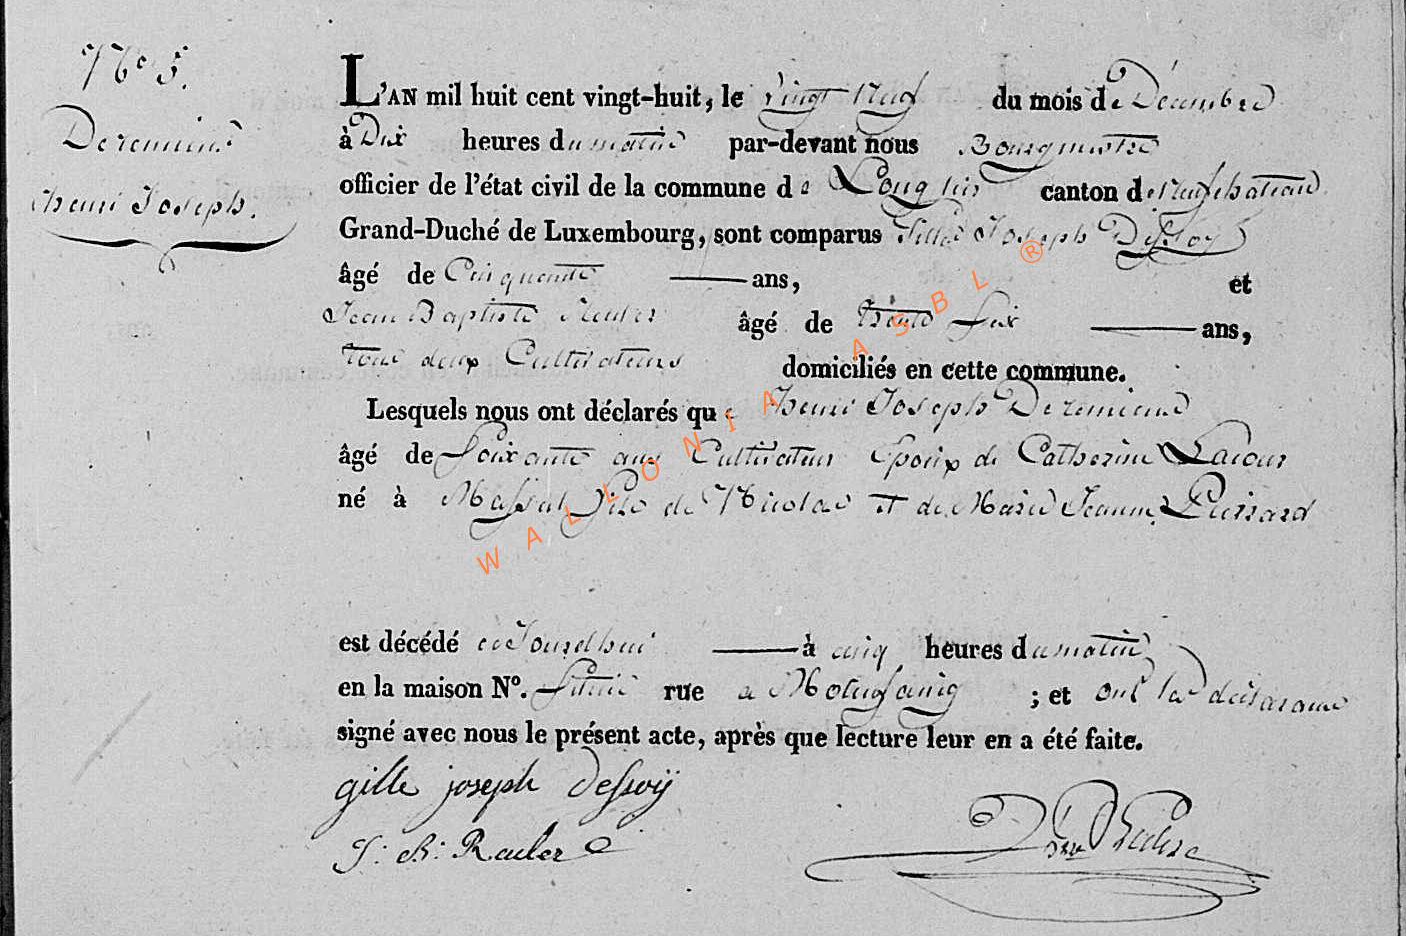 N.º 5.
Deremiens
henri Joseph.
L'AN mil huit cent vingt-huit, le vingt Neuf du mois de Décembre
à Dix heures du matin par-devant nous Bourgmestre
officier de l'état civil de la commune de Longlier canton de Neufchateau
Grand-Duché de Luxembourg, sont comparus Gille Joseph Dessoy
âgé de Cinquante ans, et
Jean Baptiste âgé de trente six ans,
tous deux Cultivateurs domiciliés en cette commune.
Lesquels nous ont déclarés que henri Joseph
âgé de Soixante ans Cultivateur Epoux de Catherine Lacour
né à Massul fils de Nicolas et de Marie Jeanne
est décédé ce Jourd'hui à cinq heures du matin
en la maison N°. rue a Molinfaing ; et ont les déclarans
signé avec nous le présent acte, après que lecture leur en a été faite.
gille joseph dessoij
J: B: Rauler
WALLONIA ASBL ®